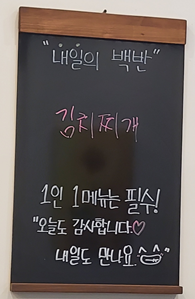 "내일의 백반"
김치찌개
1인 1메뉴는 필수!
"오늘도 감사합니다♡
내일도 만나요😁"